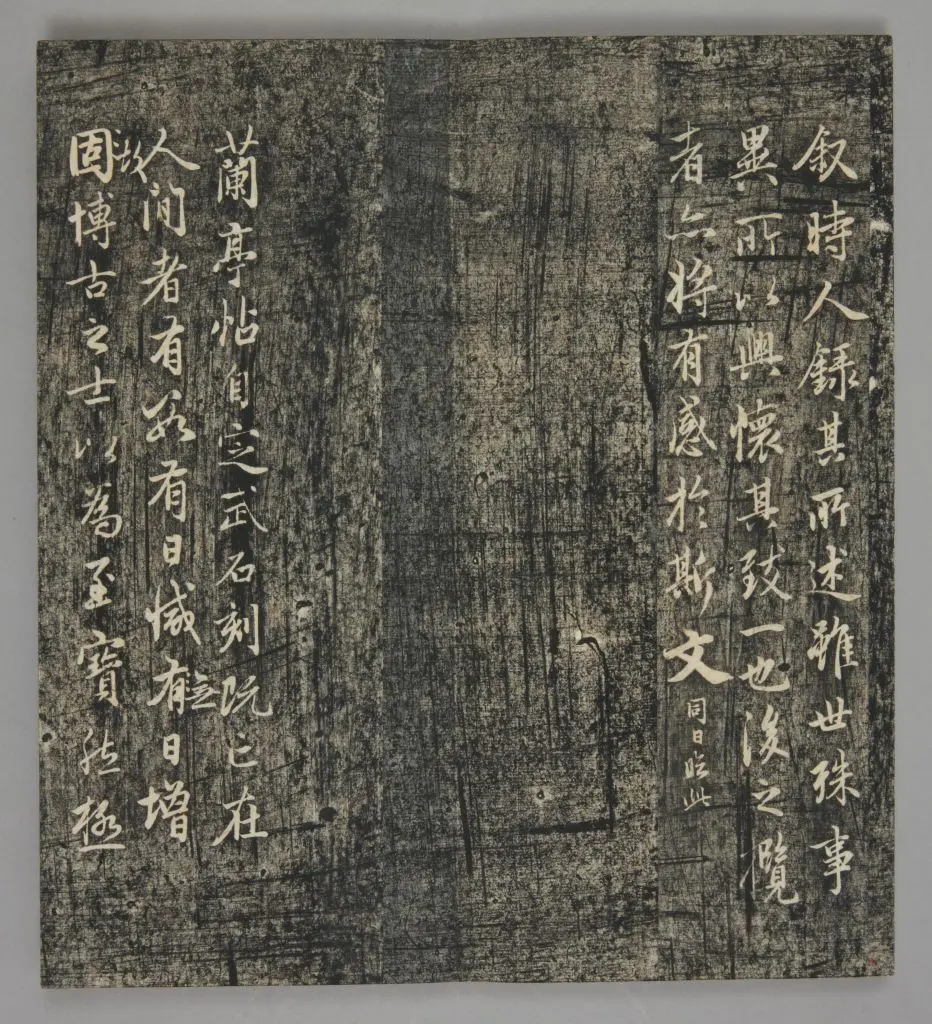 叙時人録其所述雖世殊事
異所以興懷其致一也後之攬
者亦将有感於斯文 同日臨此
蘭亭帖自定武石刻既亡在
人間者有数有日減有無日增
固故博古之士以為至寶然極